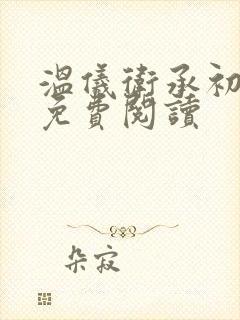 溫儀衛承初
免費閱讀
朵寂